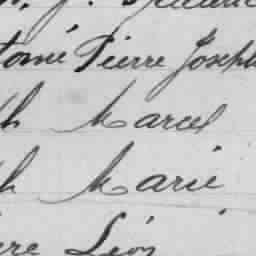 tomé Pierre Joseph
h Marcel
h Marie
re Léon